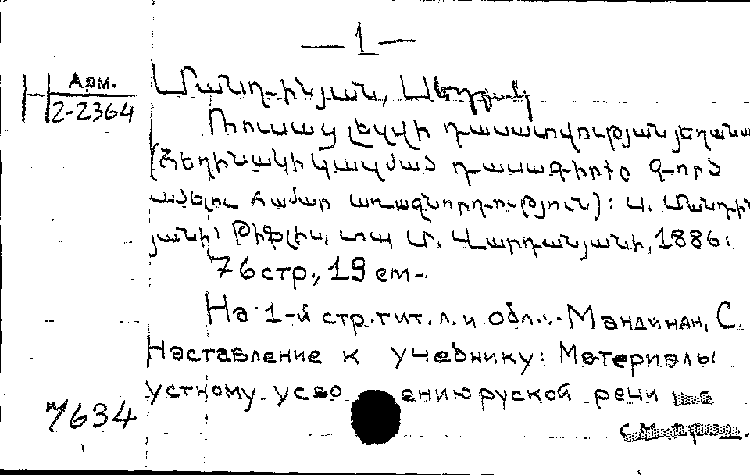 — 1 —
Арм.
2-2364
Մանդինյան, Սեդրակ
Ռուսաց լեզվի դասատվության եղանակ
(Հեղինակի կազմած դասագիրքը գործ
ածելու համար առաջնորդություն): Ս. Մանդին
յանի: Թիֆլիս, տպ Մ. Վարդանյանի, 1886:
76 стр., 19 см.
На 1-й стр. тит. л. и обл.: Мандинян, С.
Наставление к учебнику: Материалы
устному усво ению руской речи
7634
см.